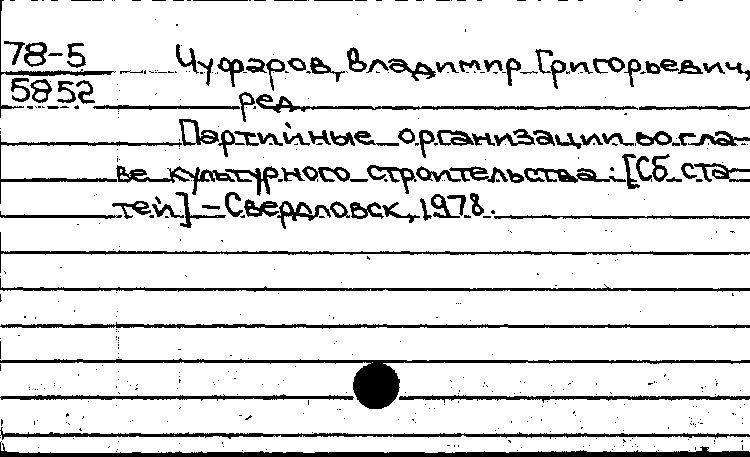 78-5 Чуфаров, Владимир Григорьевич,
5852 ред.
Партийные организации во гла-
ве культурного строительства: [Сб. ста-
тей] - Свердловск, 1978.